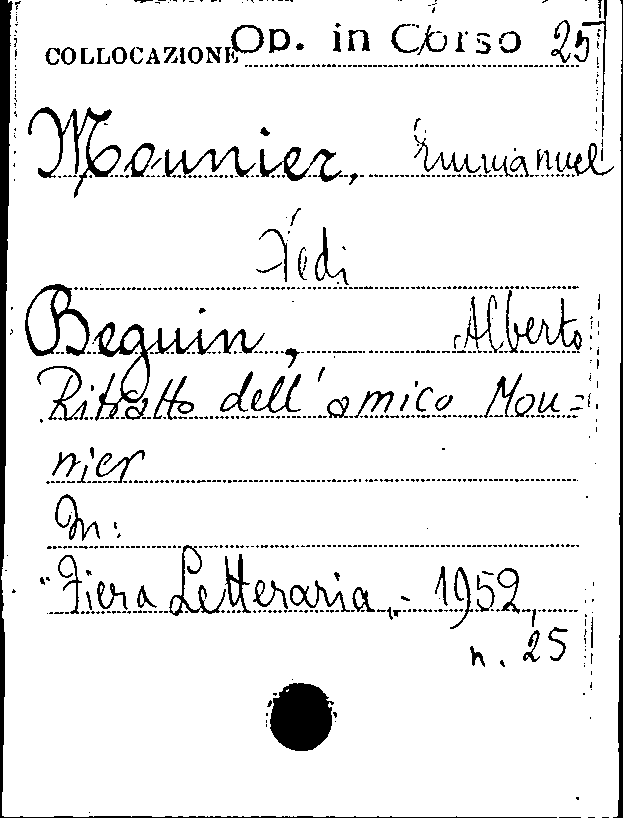 COLLOCAZIONE Op. in Corso 25
Mounier, Emmanuel
Vedi
Beguin, Alberto
Ritratto dell'amico Mou=
nier
In:
"Fiera Letteraria„- 1952,
n. 25